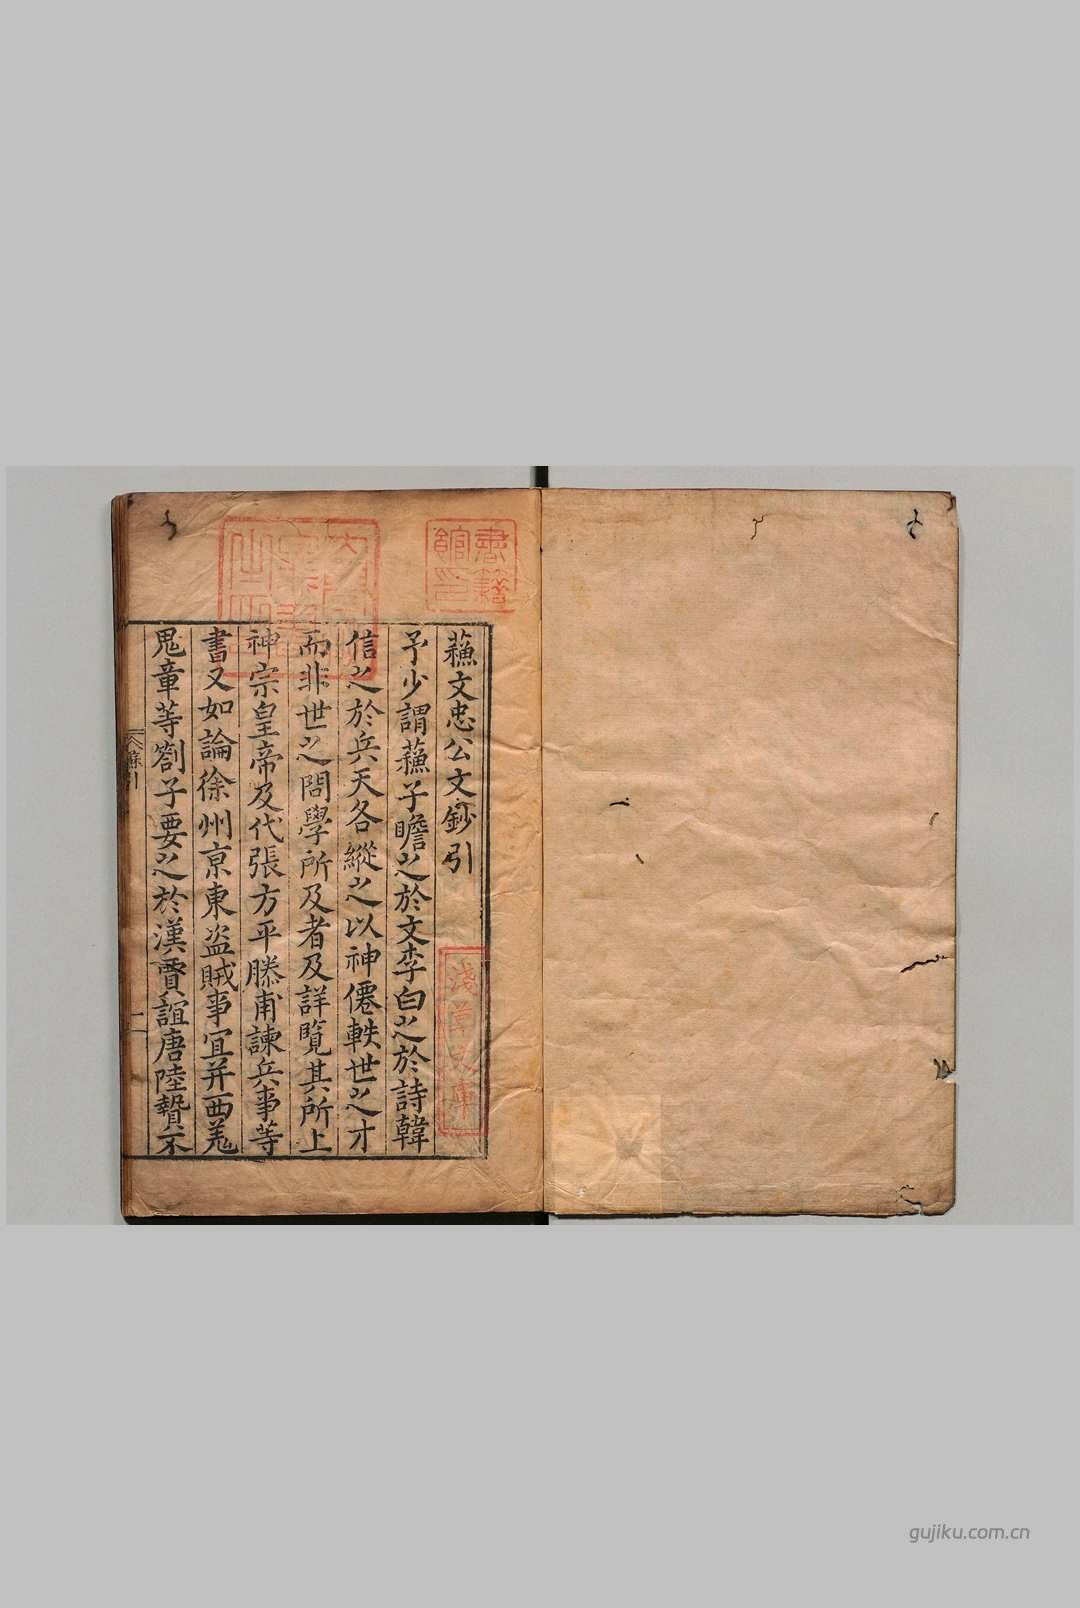 蘓文忠公文鈔引
予少謂蘓子瞻之於文李白之於詩韓
信之於兵天各縱之以神僊軼世之才
而非世之問學所及者及詳覽其所上
神宗皇帝及代張方平滕甫諫兵事等
書又如論徐州京東盜賊事宜并西羗
鬼章等劄子要之於漢賈誼唐陸贄不
蘓引
一
書籍
館印
淺草文庫
gujiku.com.cn